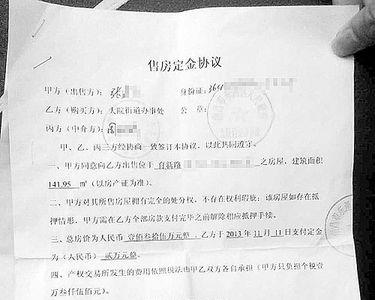 售房定金协议
甲方（出售方）：张 身份证：3601
乙方（购买方）：大院街道办事处 公 章：
丙方（中介方）：
甲、乙、丙三方经协商一致签订本协议，以此共同遵守。
一、甲方同意向乙方出售位于 育新路 之房屋，建筑面积
141.95 ㎡（以房产证为准）。
二、甲方对其所售房屋拥有完全的处分权，不存在权利瑕疵；该房屋如存在抵
押情形，甲方需在乙方全部房款支付完毕之前解除相应抵押手续。
三、总房价为人民币 壹佰叁拾伍万元整，乙方于 2013 年 11 月 11 日支付定金
为（人民币） 贰万元整。
四、产权交易所发生的费用依照税法由甲乙双方各自承担（甲方只负担个税壹
万叁仟伍佰元）。